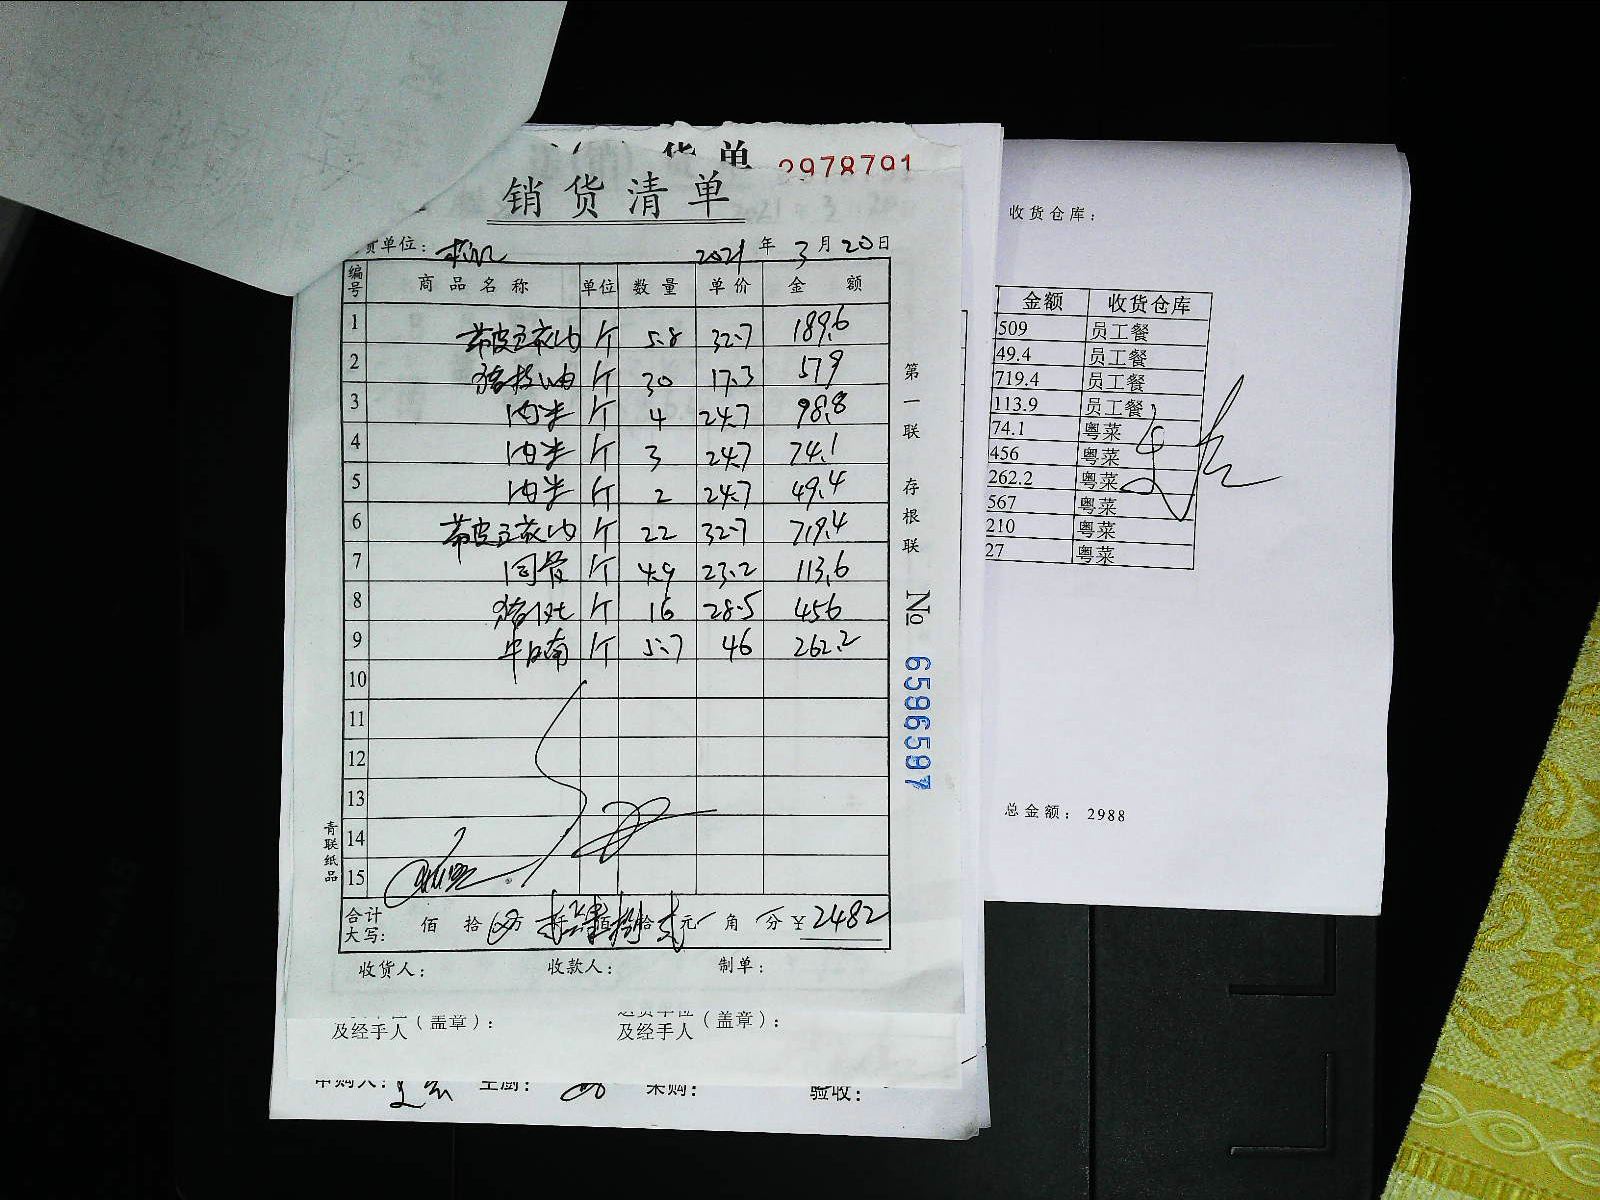 货单
2978791
销货清单
货单位：
2021年3月20日
编号 商品名称 单位 数量 单价 金额
1 带皮五花肉 斤 5.8 32.7 189.6
2 斤 30 17.3 579
3 肉半 斤 4 24.7 98.8
4 肉半 斤 3 24.7 74.1
5 肉半 斤 2 24.7 49.4
6 带皮五花肉 斤 22 32.7 719.4
7 同骨 斤 4.9 23.2 113.6
8 斤 16 28.5 456
9 牛白腩 斤 5.7 46 262.2
10
11
12
13
14
15
合计大写： 佰 拾 万 仟 佰捌拾贰元 角 分 ￥2482
收货人： 收款人： 制单：
第一联 存根联 № 6596597
青联纸品
及经手人（盖章）： 及经手人（盖章）：
申购人： 主厨： 采购： 验收：
收货仓库：
金额 收货仓库
509 员工餐
49.4 员工餐
719.4 员工餐
113.9 员工餐
74.1 粤菜
456 粤菜
262.2 粤菜
567 粤菜
210 粤菜
27 粤菜
总金额： 2988